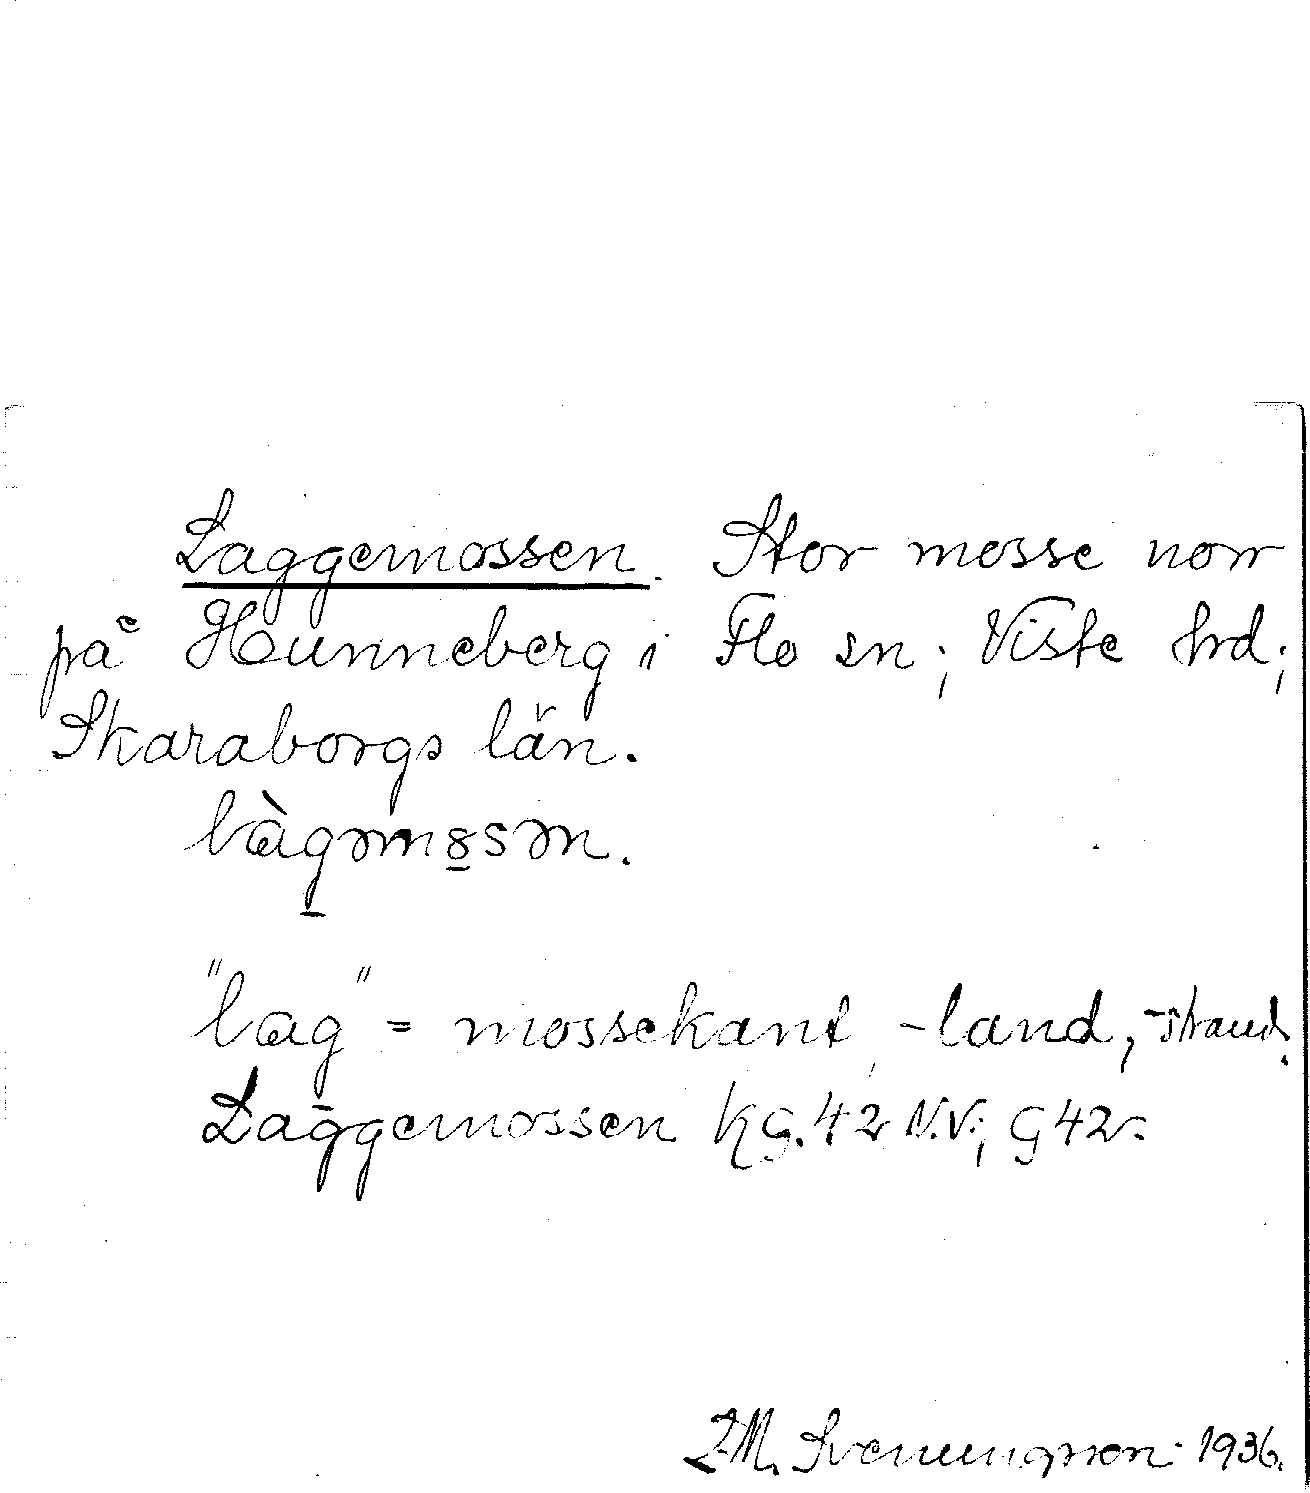 Laggemossen. Stor mosse norr
på Hunneberg i Flo sn; Viste hrd;
Skaraborgs län.
làgəmȣsən.
"lag" = mossekant, -land, -strand.
Laggemossen KG.42 N.V.; G 42.
Svenungsson 1936.